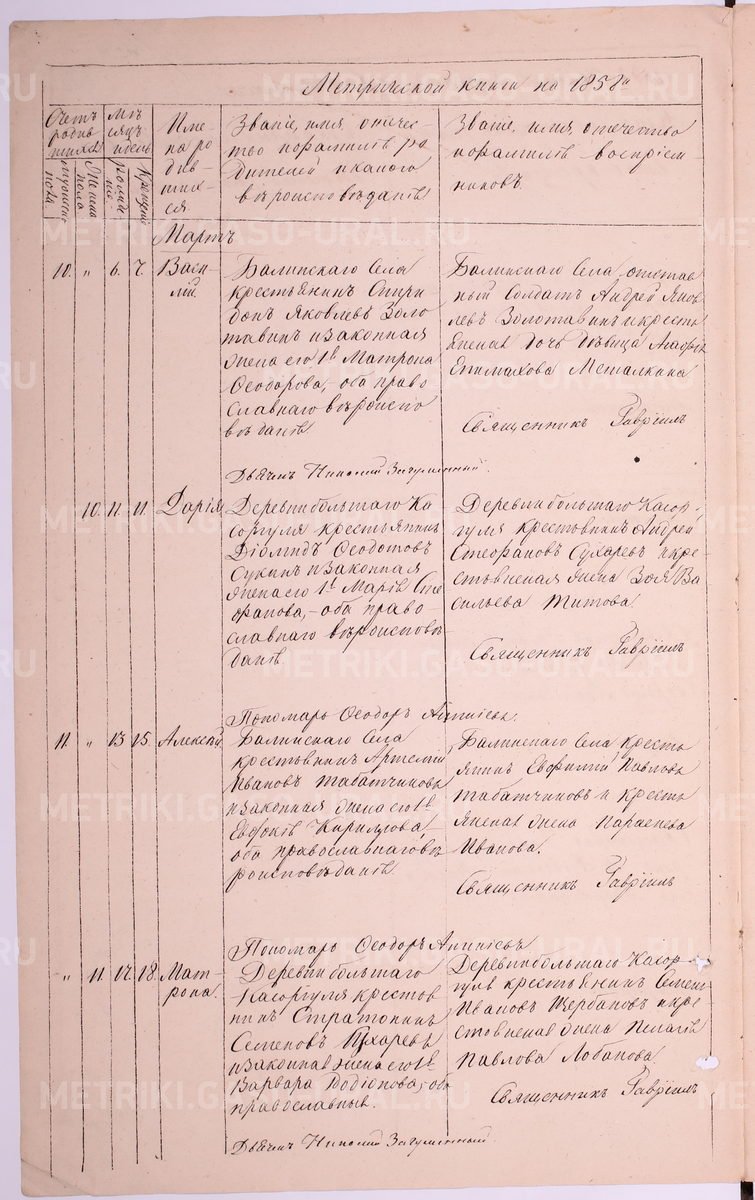 Метрической книги на 1858й
Счетъ родившихся
Мужеска пола
Женска пола
Мѣсяцъ и день
рожденія
крещенія
Имена родившихся
Званіе, имя, отечество и фамилія родителей и какого вѣроисповѣданія
Званіе, имя, отечество и фамилія воспріемниковъ.
Мартъ
10. „ 6. 7. Василій.
Балинскаго Села
крестьянинъ Спиридонъ Яковлевъ Золотавинъ и законная
жена его 1я Матрона
Ѳеодорова, оба православнаго вѣроисповѣданія
Балинскаго Села отставный Солдатъ Андрей Яковлевъ Золотавинъ и крестьянская дочь дѣвица Агафья
Епимахова Металкина
Священникъ Гавріилъ
Дьячекъ Николай Загуменный.
10. 11. 11. Дарія
Деревни большаго Касоргуля крестьянинъ
Діомидъ Ѳеодотовъ
Сукинъ и законная
жена его 1я Марія Стефанова, оба православнаго вѣроисповѣданія
Деревни большаго Касоргуля крестьянинъ Андрей
Стефановъ Сухаревъ и крестьянская жена Зоя Васильева Титова.
Священникъ Гавріилъ
Пономарь Ѳеодоръ
11. „ 13 15. Алексій.
Балинскаго Села
крестьянинъ Артемій
Ивановъ Табатчиковъ
и законная жена его 1я
Евдокія Кирилова,
оба православнаго вѣроисповѣданія.
Балинскаго Села крестьянинъ Евфимій Павловъ
Табатчиковъ и крестьянская жена Параскева
Иванова.
Священникъ Гавріилъ
Пономарь Ѳеодоръ
„ 11. 17. 18. Матрона.
Деревни большаго
Касоргуля крестьянинъ Стратоникъ
Семеновъ Пухаревъ
и законная жена его 1я
Варвара Родіонова, оба
православные.
Деревни большаго Касоргуля крестьянинъ Семенъ
Ивановъ Щербаковъ и крестьянская жена Пелагія
Павлова Лобанова
Священникъ Гавріилъ
Дьячекъ Николай Загуменный.
METRIKI.GASU-URAL.RU